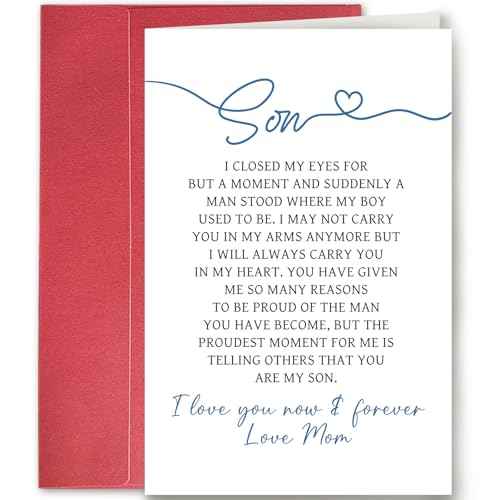 Son
I CLOSED MY EYES FOR
BUT A MOMENT AND SUDDENLY A
MAN STOOD WHERE MY BOY
USED TO BE. I MAY NOT CARRY
YOU IN MY ARMS ANYMORE BUT
I WILL ALWAYS CARRY YOU
IN MY HEART. YOU HAVE GIVEN
ME SO MANY REASONS
TO BE PROUD OF THE MAN
YOU HAVE BECOME, BUT THE
PROUDEST MOMENT FOR ME IS
TELLING OTHERS THAT YOU
ARE MY SON.
I love you now & forever
Love Mom